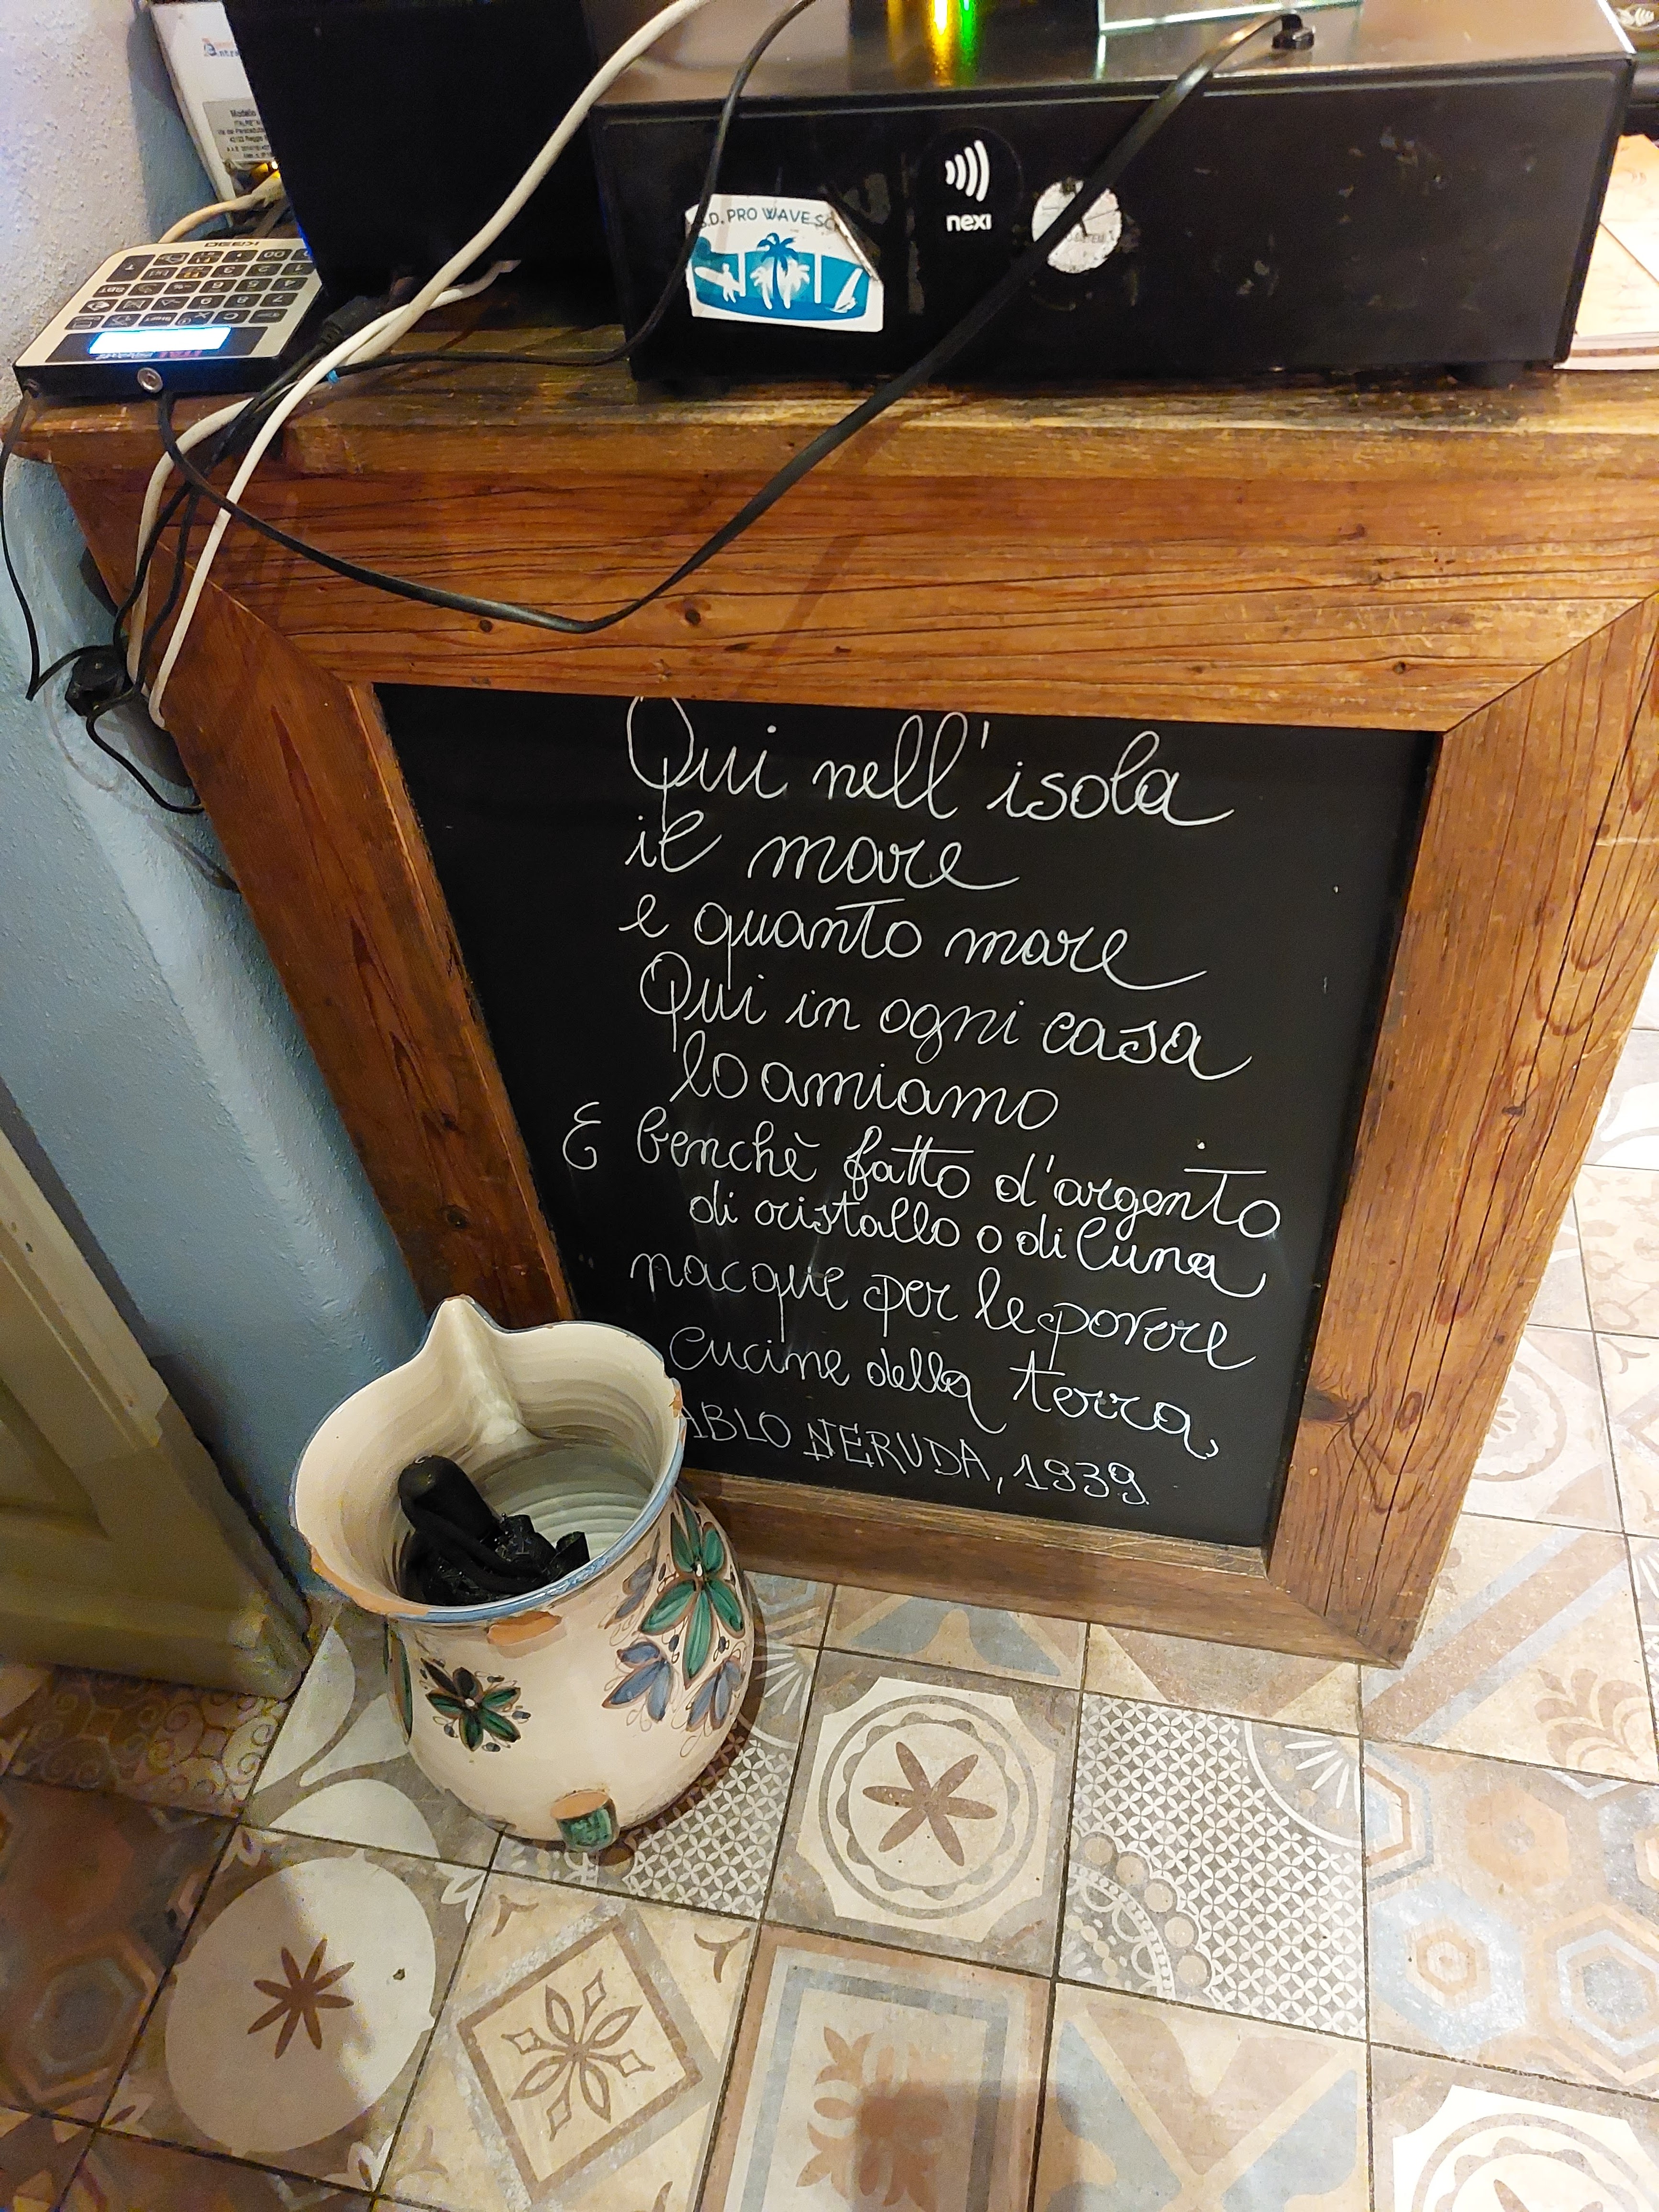 nexi
PRO WAVE
Qui nell'isola
il mare
e quanto mare
Qui in ogni casa
lo amiamo
E benchè fatto d'argento
di cristallo o di luna
nacque per le povere
cucine della terra,
ABLO NERUDA, 1939